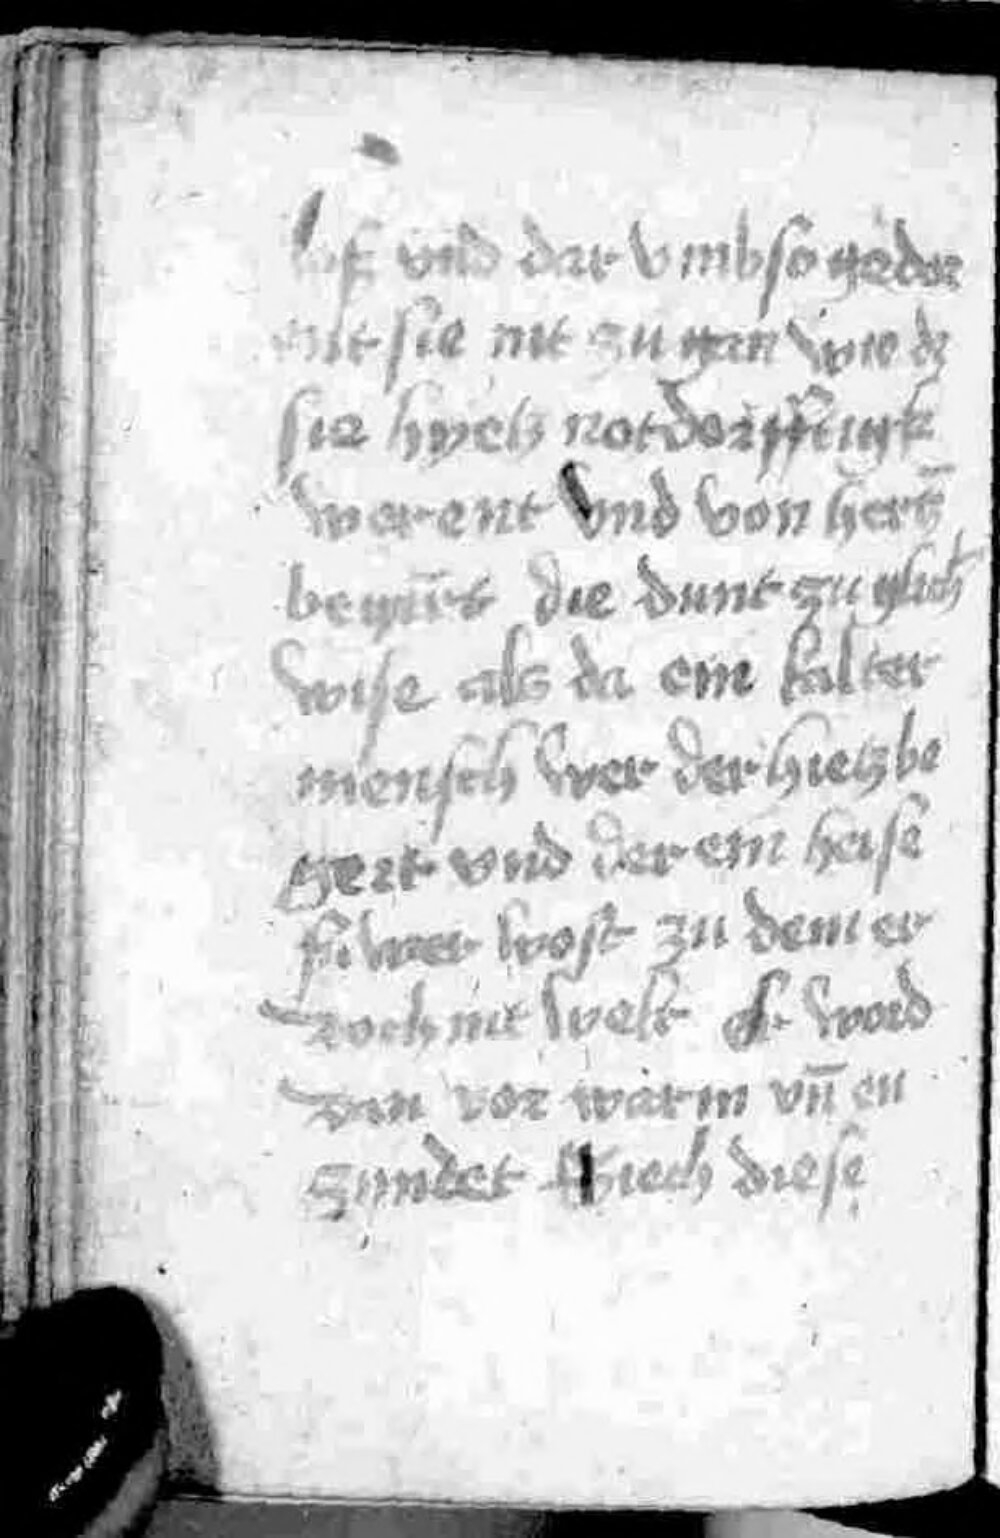 vnd dar vmb so
sie nit zu gan wie dz
sie hyels notdorfftigk
werent vnd von hertz̄
begert die dunt zu glich
wise als da ein kalter
mensch wer der hietz be
gert vnd der ein heise
fuwer wost zu dem er
noch nit welt E word
dan vor warm vn̄ en
zundet Sich diese